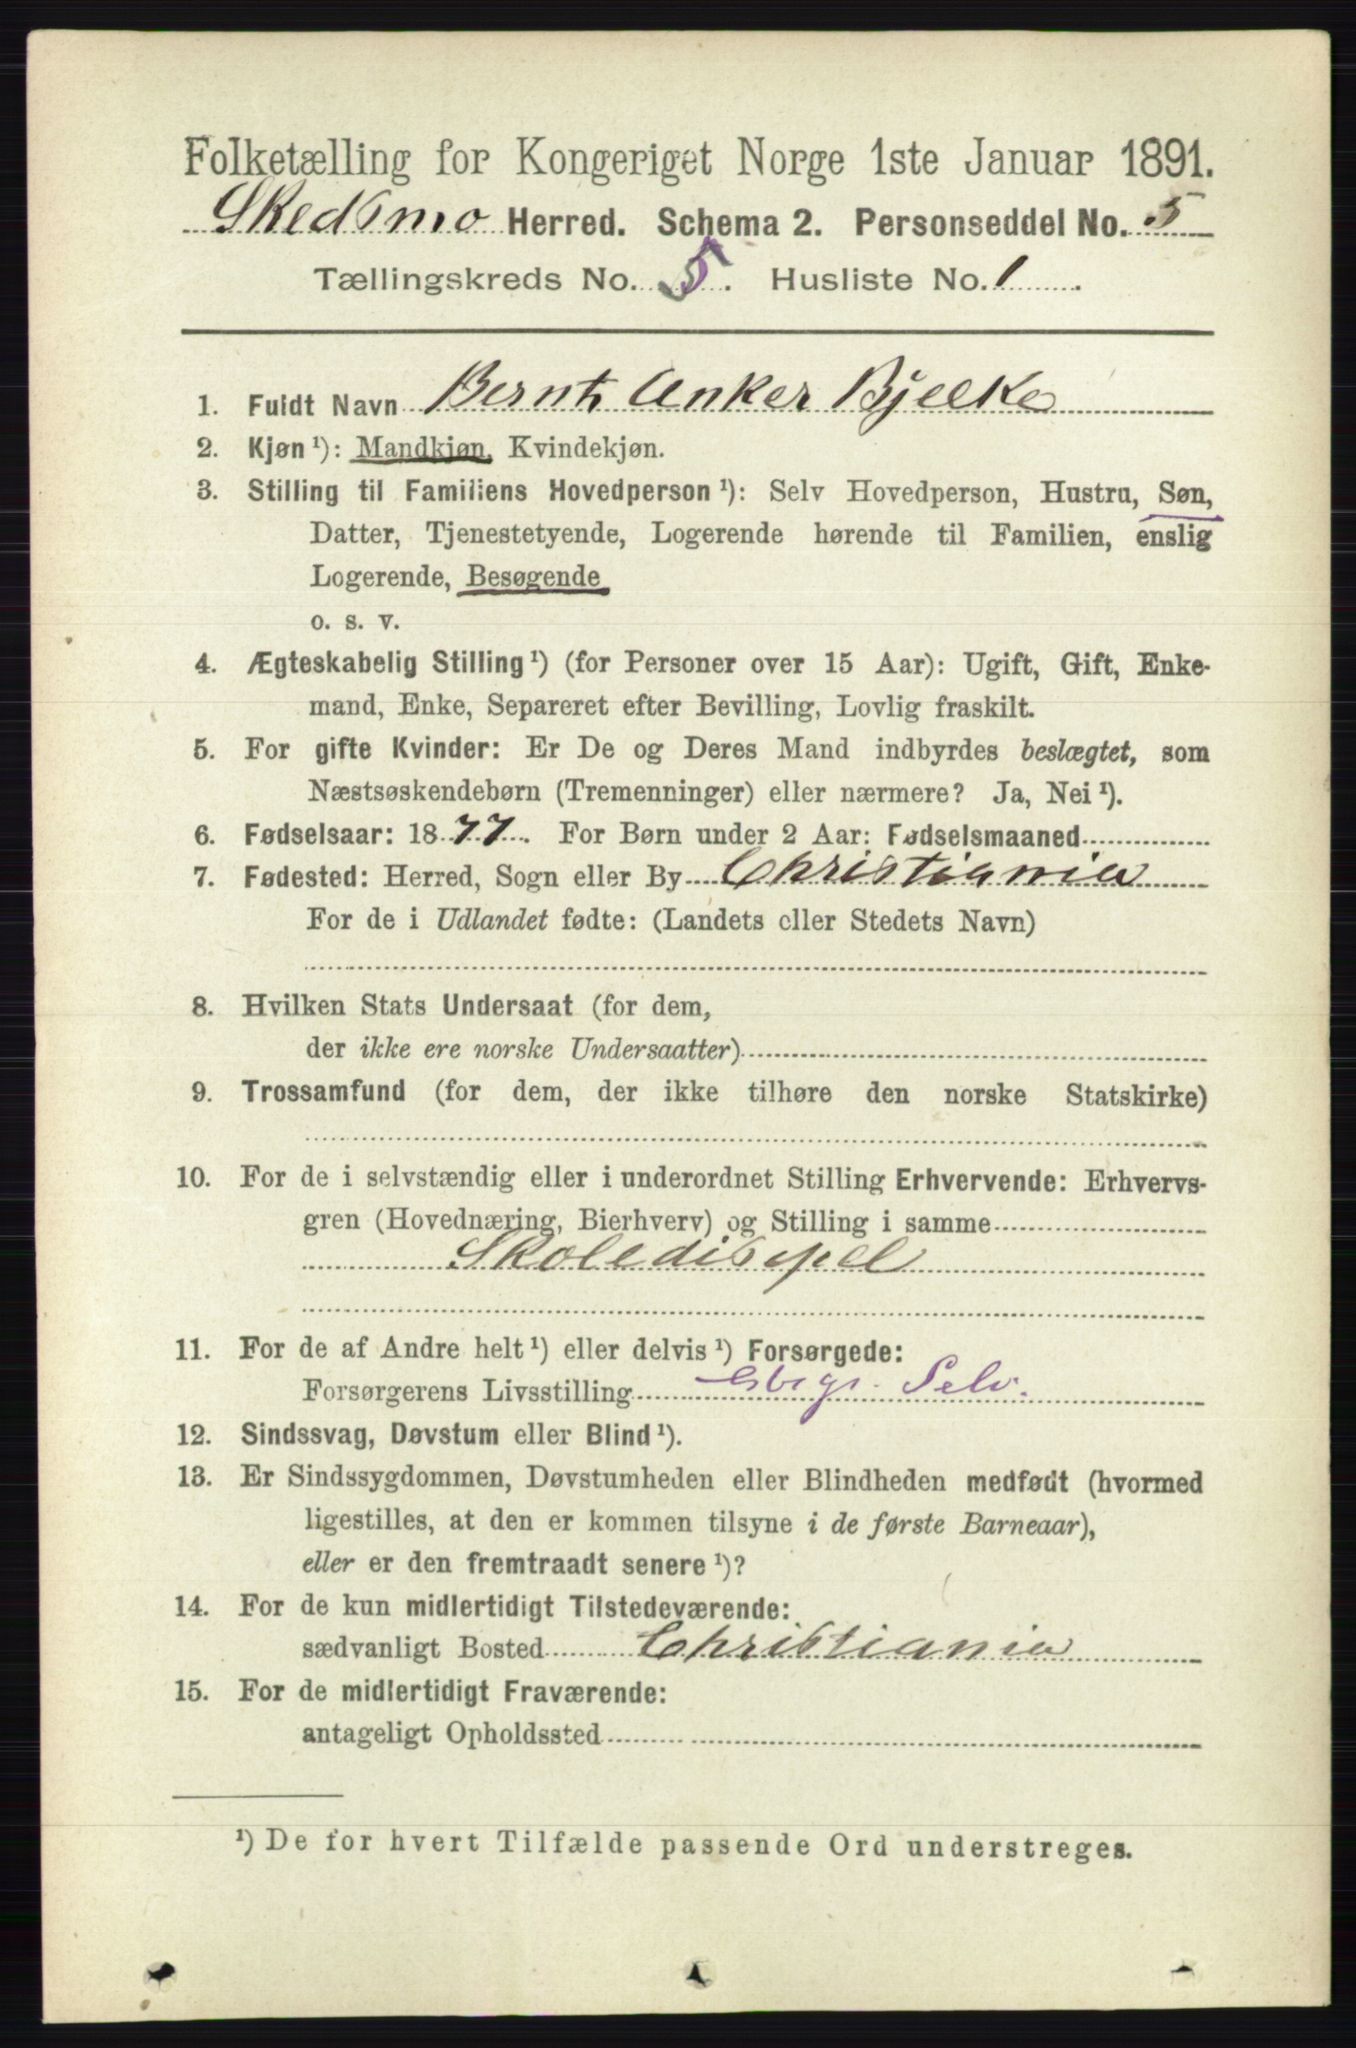 Folketælling for Kongeriget Norge 1ste Januar 1891.
Skedsmo Herred. Schema 2. Personseddel No. 5
Tællingskreds No. 5. Husliste No. 1.
1. Fuldt Navn Bernt Anker Bjelke
2. Kjøn¹): Mandkjøn, Kvindekjøn.
3. Stilling til Familiens Hovedperson¹): Selv Hovedperson, Hustru, Søn,
Datter, Tjenestetyende, Logerende hørende til Familien, enslig
Logerende, Besøgende
o. s. v.
4. Ægteskabelig Stilling¹) (for Personer over 15 Aar): Ugift, Gift, Enke-
mand, Enke, Separeret efter Bevilling, Lovlig fraskilt.
5. For gifte Kvinder: Er De og Deres Mand indbyrdes beslægtet, som
Næstsøskendebørn (Tremenninger) eller nærmere? Ja, Nei¹).
6. Fødselsaar: 1877. For Børn under 2 Aar: Fødselsmaaned
7. Fødested: Herred, Sogn eller By Christiania
For de i Udlandet fødte: (Landets cller Stedets Navn)
8. Hvilken Stats Undersaat (for dem,
der ikke ere norske Undersaatter)
9. Trossamfund (for dem, der ikke tilhøre den norske Statskirke)
10. For de i selvstændig eller i underordnet Stilling Erhvervende: Erhvervs-
gren (Hovednæring, Bierhverv) og Stilling i samme
Skoledisipel
11. For de af Andre helt¹) eller delvis¹) Forsørgede:
Forsørgerens Livsstilling Selv.
12. Sindssvag, Døvstum eller Blind¹).
13. Er Sindssygdommen, Døvstumheden eller Blindheden medfødt (hvormed
ligestilles, at den er kommen tilsyne i de første Barneaar),
eller er den fremtraadt senere¹)?
14. For de kun midlertidigt Tilstedeværende:
sædvanligt Bosted Christiania
15. For de midlertidigt Fraværende:
antageligt Opholdssted
¹) De for hvert Tilfælde passende Ord understreges.